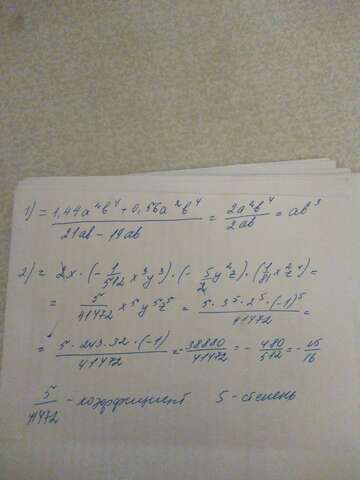 1) = (1,44a²b⁴ + 0,56a²b⁴)/(21ab - 19ab) = 2a²b⁴/2ab = ab³
2) = 2x · (- 1/512 x³y³) · (- 5/2 y²z) · (1/81 x z⁴) =
= 5/41472 x⁵y⁵z⁵ = 5 · 3⁵ · 2⁵ · (-1)⁵/41472 =
= 5 · 243 · 32 · (-1)/41472 = - 38880/41472 = - 480/512 = - 15/16
5/41472 - коэффициент 5 - степень